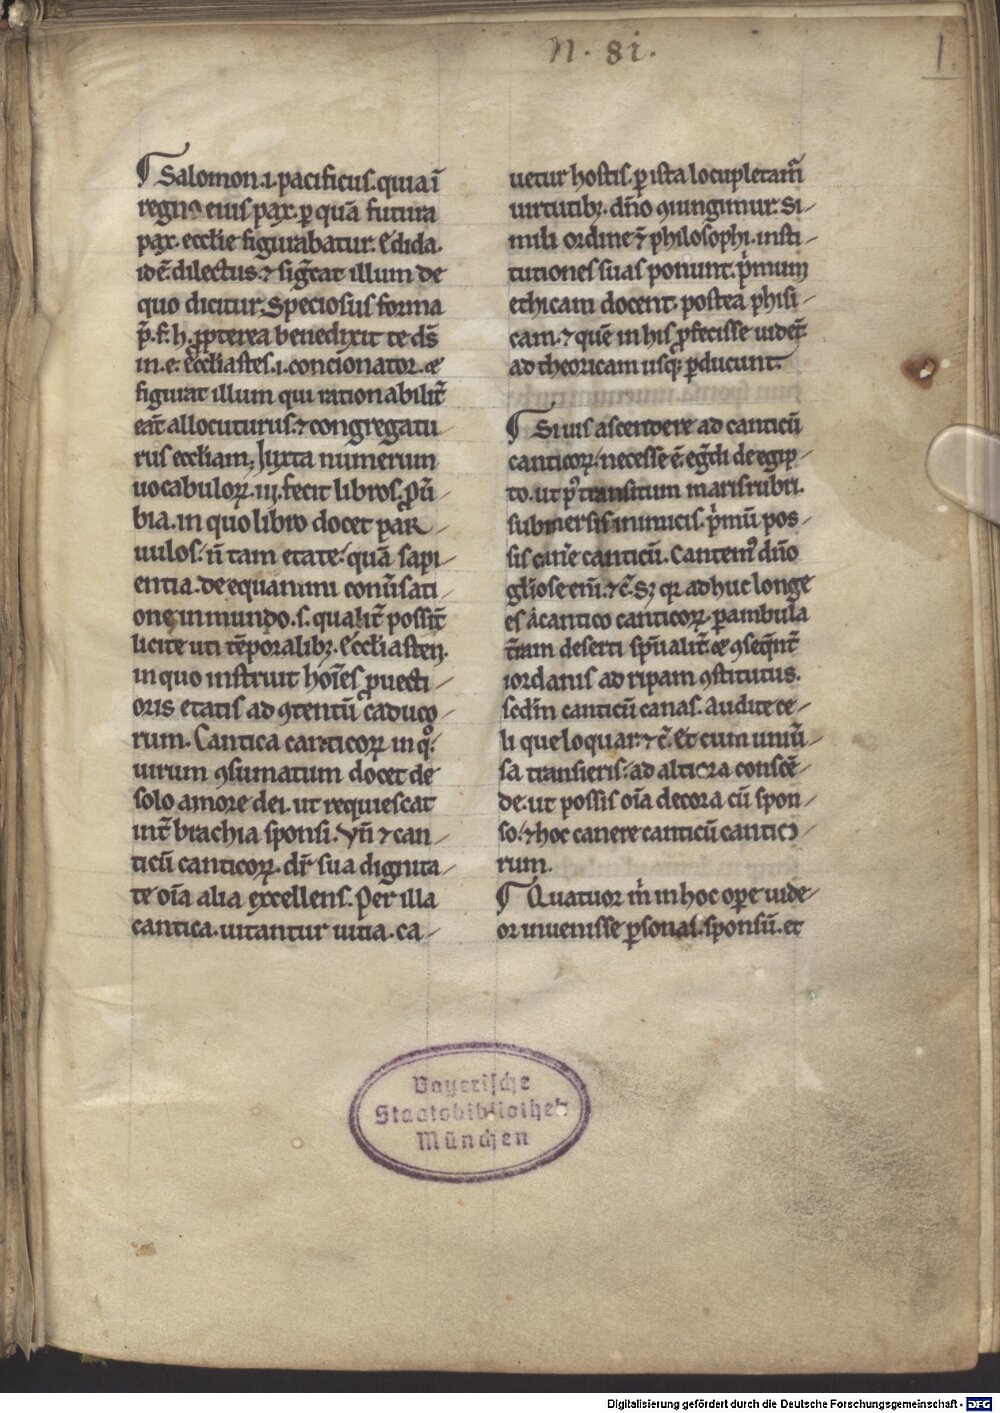 N. 81.
1.
¶ Salomon .i. pacificus. quia ī
regno eius pax. ꝑ quā futura
pax. ecclie figurabatur. Edida.
idē dilectus. ⁊ sig̅cat illum de
quo dicitur. Speciosus forma
p̄. f. h. ꝓpterea benedixit te ds̄
in. e. Ecclīastes .i. concionator. ⁊
figurat illum qui rationabilit̄
eāt allocuturus. ⁊ congregatu
rus eccłiam. Iuxta numerum
uocabuloꝝ. iij. fecit libros. Pū/
bia. in quo libro docet par/
uulos. n̄ tam etate. quā sapi/
entia. de equanimi conūsati/
one in mundo .s. qualit̄ possīt
licite uti tēporalibꝫ. Eccłiasten.
in quo instruit hoīes ꝓuecti/
oris etatis ad ꝯtentū caduco/
rum. Cantica canticoꝝ in qͦ.
uirum ꝯsumatum docet de
solo amore dei. ut requiescat
int̄ brachia sponsi. Vn̄ ⁊ can/
ticū canticoꝝ. dr̄ sua dignita/
te oīa alia excellens. Per illa
cantica. uitantur uitia. ca/
uetur hostis. ꝑ ista locupletam̄
uirtutibꝫ. dn̄o ꝯiungimur. Si/
mili ordine ⁊ philosophi. insti/
tutiones suas ponunt. p̄mum
ethicam docent. postea phisi/
cam. ⁊ quē in his ꝓfecisse uidēt.
ad theoricam usqꝫ ꝑducunt.
¶ Si uis ascendere ad canticū
canticoꝝ. necesse ē. eg̅di de egip/
to. ut pꝰ transitum maris rubri.
submersis inimicis. p̄mū pos/
sis cane̅ canticū. Cantemꝰ dn̄o
głiose eni̅. ⁊c̄. Sꝫ qꝛ adhuc longe
es a cantico canticoꝝ. ꝑambula
t̄ram deserti spūalit̄. ⁊ ꝯseq̄nt̄
iordanis ad ripam ꝯstitutus.
scd̄m canticū canas. Audite ce/
li que loquar. ⁊c̄. Et cum uniū/
sa transieris. ad altiora conscē/
de. ut possis oīa decora cū spon/
so. ⁊ hoc canere canticū cantico
rum.
¶ Quatuor m̄ in hoc opere uide/
or inuenisse ꝑsonas. sponsū. et
Bayerische
Staatsbibliothek
München
Digitalisierung gefördert durch die Deutsche Forschungsgemeinschaft - DFG